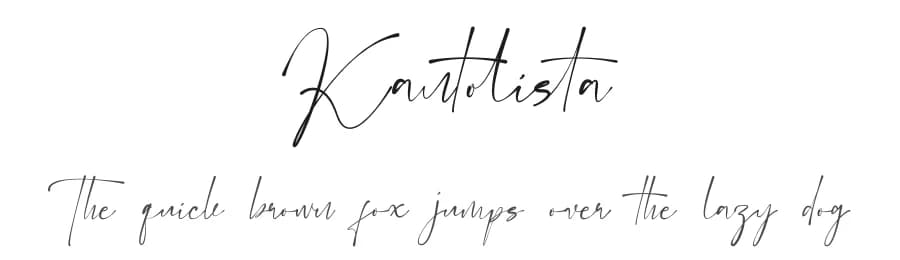 Kantolista
The quick brown fox jumps over the lazy dog